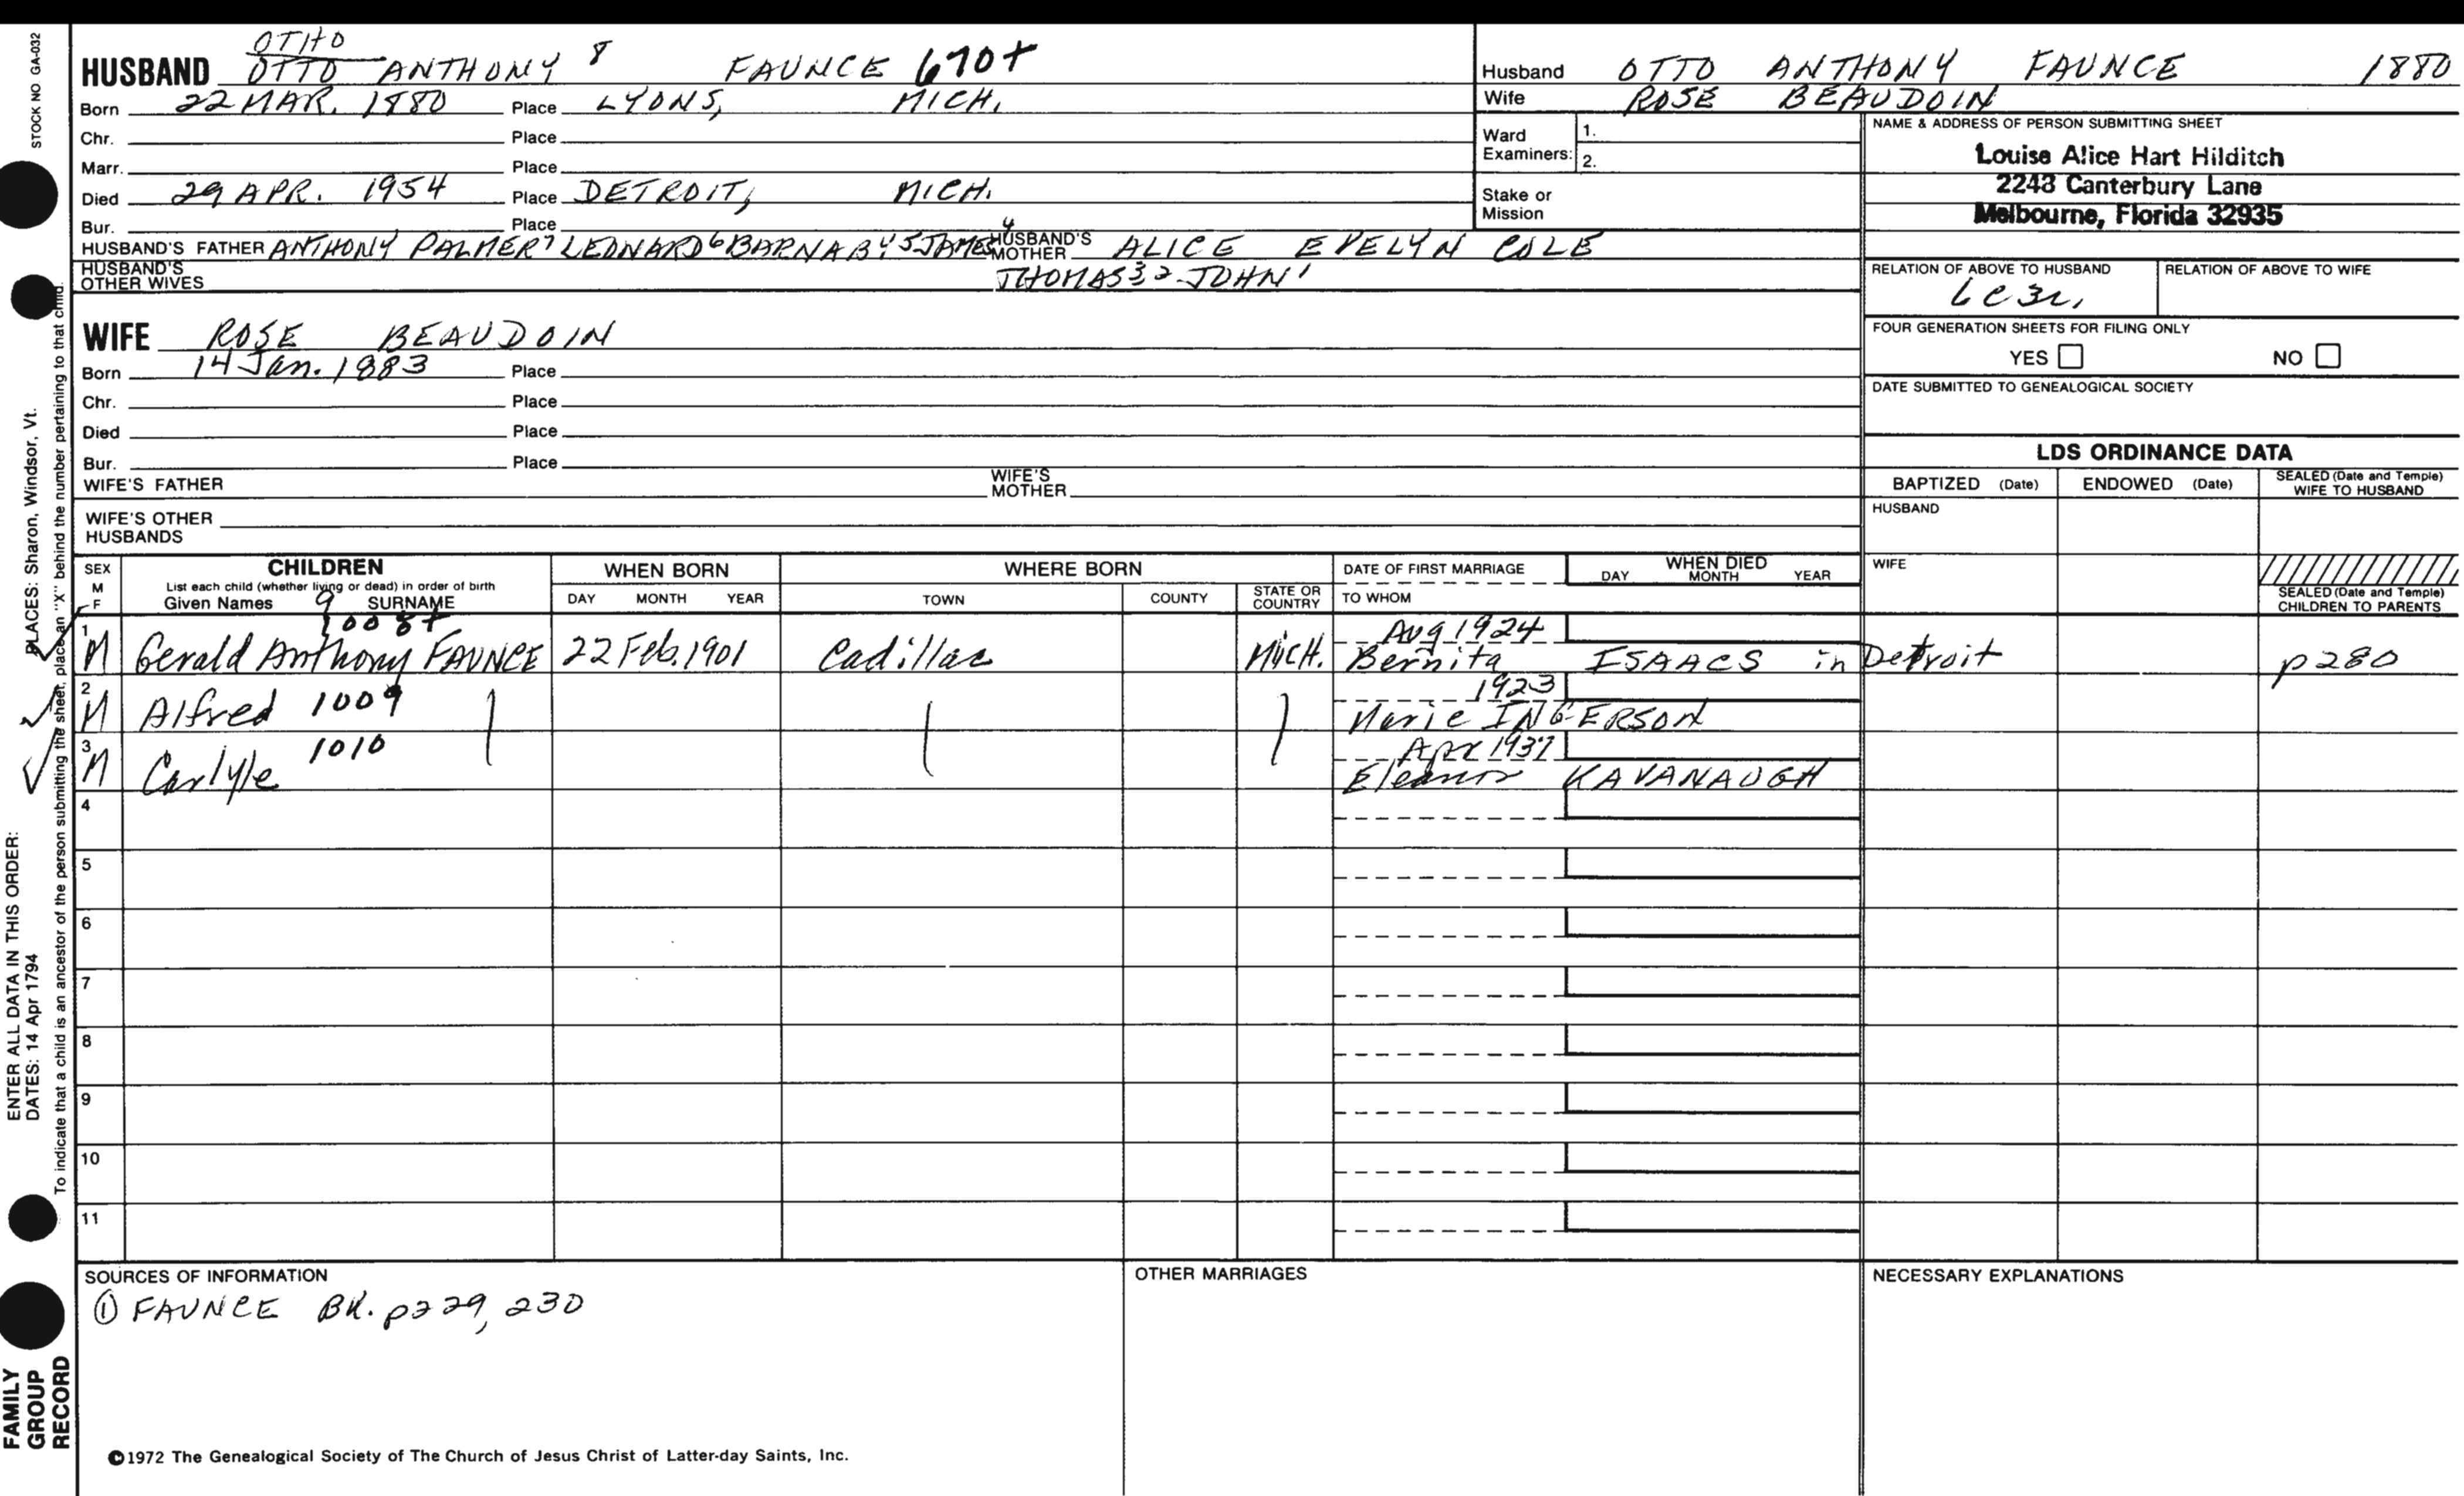 STOCK NO GA-032
OTHO
HUSBAND OTTO ANTHONY 8 FAUNCE 670+
Born 22 MAR. 1880 Place LYONS, MICH.
Chr. Place
Marr. Place
Died 29 APR. 1954 Place DETROIT, MICH.
Bur. Place
HUSBAND'S FATHER ANTHONY PALMER 7 LEONARD 6 BARNABY 5 JAMES 4 HUSBAND'S MOTHER ALICE EVELYN COLE
HUSBAND'S OTHER WIVES THOMAS 3 2 JOHN 1
WIFE ROSE BEAUDOIN
Born 14 Jan. 1883 Place
Chr. Place
Died Place
Bur. Place
WIFE'S FATHER WIFE'S MOTHER
WIFE'S OTHER HUSBANDS
Husband OTTO ANTHONY FAUNCE 1880
Wife ROSE BEAUDOIN
Ward Examiners: 1.
2.
Stake or Mission
NAME & ADDRESS OF PERSON SUBMITTING SHEET
Louise Alice Hart Hilditch
2243 Canterbury Lane
Melbourne, Florida 32935
RELATION OF ABOVE TO HUSBAND RELATION OF ABOVE TO WIFE
6c3r,
FOUR GENERATION SHEETS FOR FILING ONLY
YES NO
DATE SUBMITTED TO GENEALOGICAL SOCIETY
LDS ORDINANCE DATA
BAPTIZED (Date) ENDOWED (Date) SEALED (Date and Temple) WIFE TO HUSBAND
HUSBAND
WIFE
SEALED (Date and Temple) CHILDREN TO PARENTS
SEX M F
CHILDREN
List each child (whether living or dead) in order of birth
Given Names 9 SURNAME
WHEN BORN
DAY MONTH YEAR
WHERE BORN
TOWN COUNTY STATE OR COUNTRY
DATE OF FIRST MARRIAGE
TO WHOM
WHEN DIED
DAY MONTH YEAR
1008+ Aug 1924
1 M Gerald Anthony FAUNCE 22 Feb. 1901 Cadillac MICH. Bernita ISAACS in Detroit p280
1923
2 M Alfred 1009 Marie INGERSON
Apr 1937
3 M Carlyle 1010 Eleanor KAVANAUGH
4
5
6
7
8
9
10
11
SOURCES OF INFORMATION
① FAUNCE BK. p229, 230
OTHER MARRIAGES
NECESSARY EXPLANATIONS
©1972 The Genealogical Society of The Church of Jesus Christ of Latter-day Saints, Inc.
ENTER ALL DATA IN THIS ORDER:
DATES: 14 Apr 1794 PLACES: Sharon, Windsor, Vt.
To indicate that a child is an ancestor of the person submitting the sheet, place an "X" behind the number pertaining to that child.
FAMILY
GROUP
RECORD